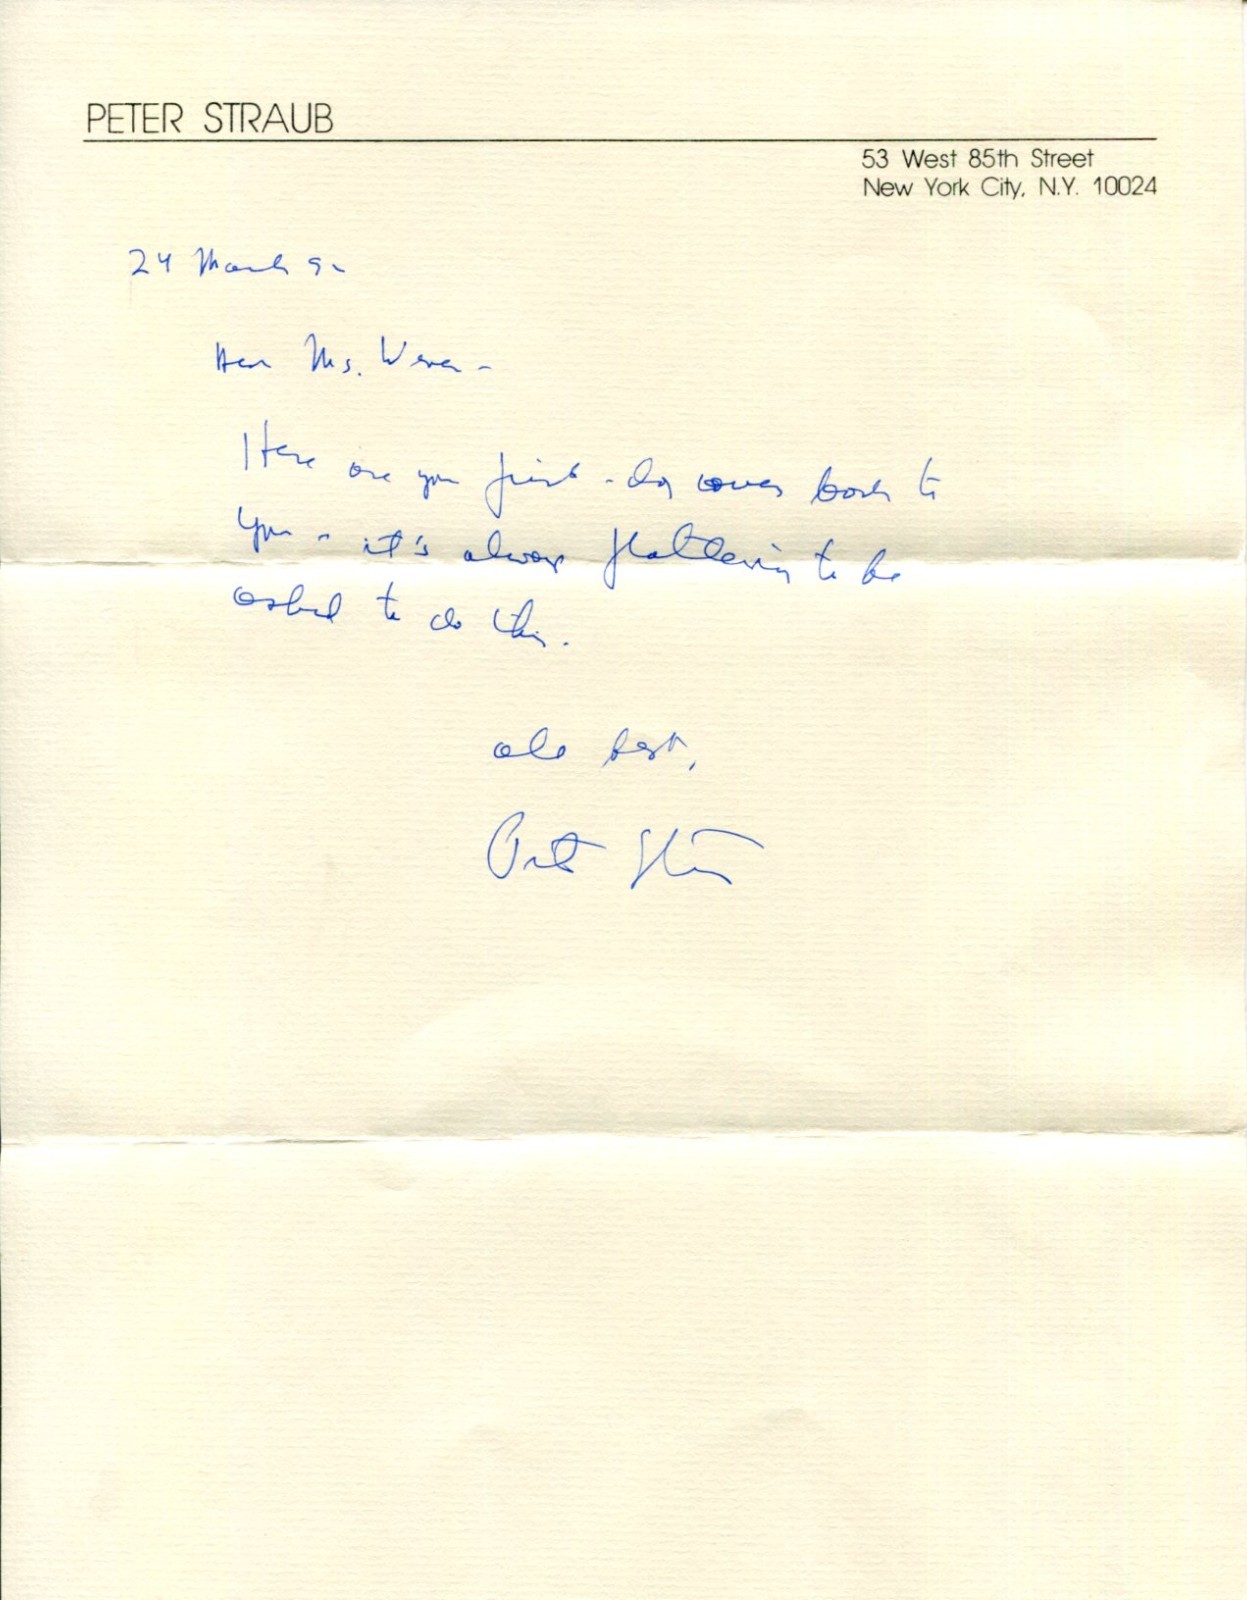 PETER STRAUB
53 West 85th Street
New York City, N.Y. 10024
24 March 92
Dear Ms.
Here are your first-day covers back to
you - it's always flattering to be
asked to do this.
All best,
Peter Straub